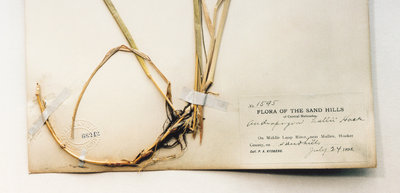 No. 1595
FLORA OF THE SAND HILLS
of Central Nebraska.
Andropogon Hallii Hack
On Middle Loup River, near Mullen, Hooker
County, on sandhills
Coll. P. A. RYDBERG. July 24 1893.